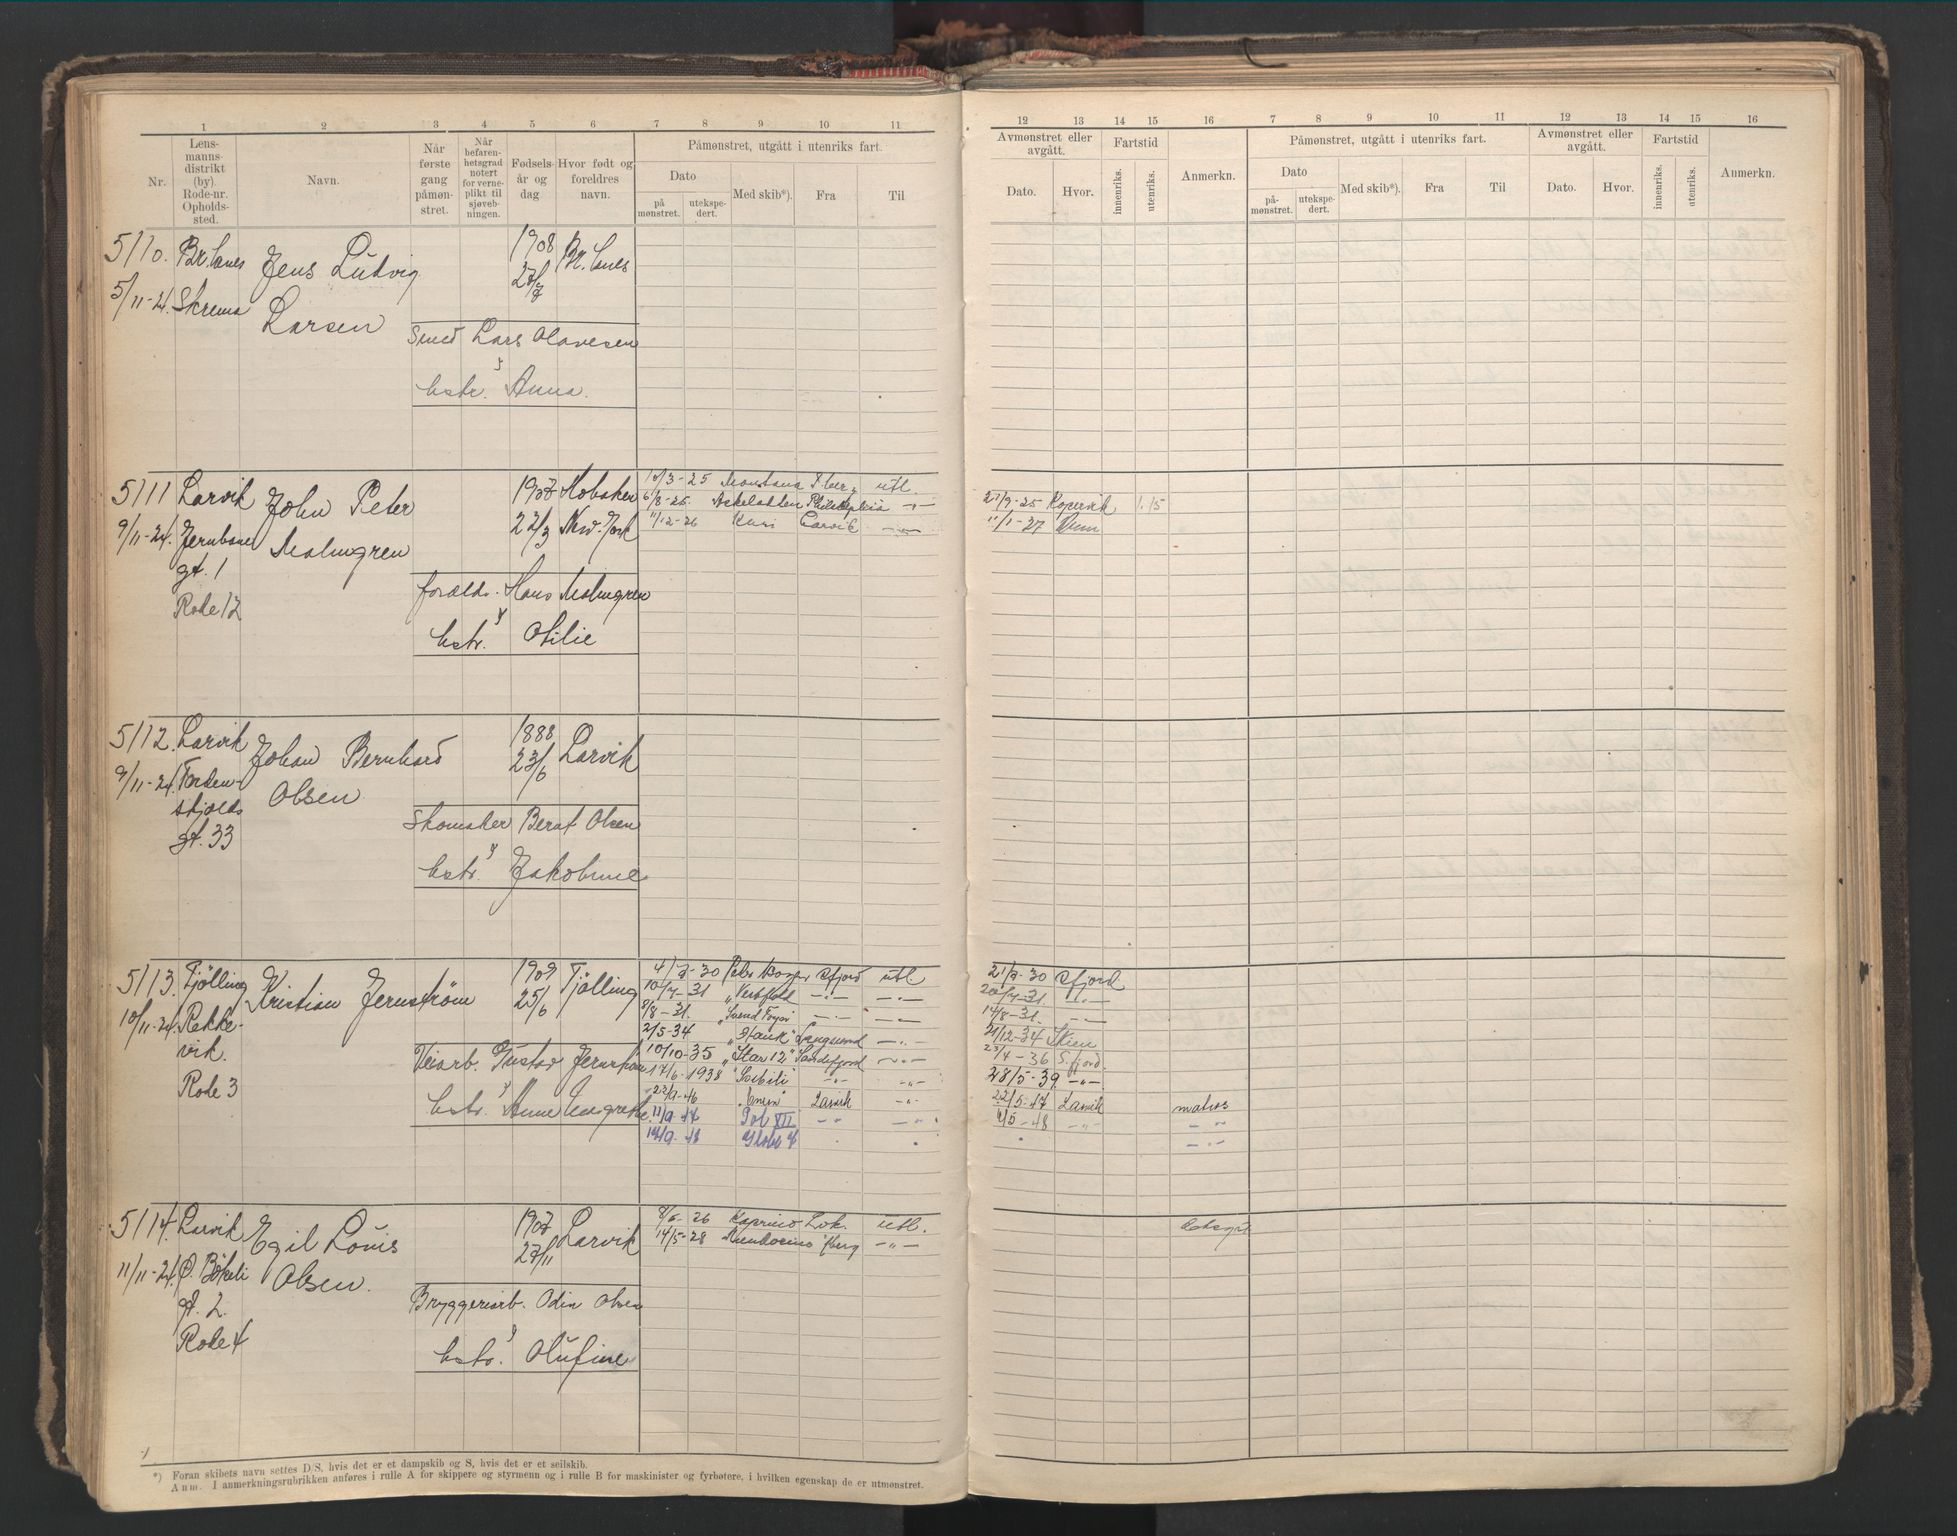 1 2 3 4 5 6 7 8 9 10 11
Nr. Lensmannsdistrikt (by). Rode-nr. Opholdssted. Navn. Når første gang påmønstret. Når befarenhetsgrad notert for verneplikt til sjøvebningen. Fødselsår og dag Hvor født og foreldres navn. Påmønstret, utgått i utenriks fart.
Dato Med skib*). Fra Til
på mønstret. utekspedert.
12 13 14 15 16 7 8 9 10 11 12 13 14 15 16
Avmønstret eller avgått. Fartstid Anmerkn. Påmønstret, utgått i utenriks fart. Avmønstret eller avgått. Fartstid Anmerkn.
Dato. Hvor. innenriks. utenriks. Dato Med skib*). Fra Til Dato. Hvor. innenriks. utenriks.
påmønstret. utekspedert.
5110. Br.lanes Jens Ludvig 1908 Br. lanes
5/11-24. Skrema Larsen 27/7
Smed Lars Olavesen
&
hstr. Anna.
5111 Larvik John Peter 1907 Hoboken 10/3-25 Montana utl.
9/11-24. Jernbane Malmgren 22/3 New-York 6/8-25 Askeladden Philadelphia -"- 21/9-25 Kopervik 1.15
11/12-26 Kari Larvik -"- 11/1-27
gt. 1
Rode 12
foreldr. Hans Malmgren
&
hstr. Otilie
5112. Larvik Johan Bernhard 1888 Larvik
9/11-24. Tordenskjolds Olsen 23/6
gt. 33
Skomaker Bernt Olsen
&
hstr. Jakobine
5113. Tjølling Kristian Jernstrøm 1909 Tjølling 4/7-30 Peder Bogen Sfjord utl. 21/7-30 Sfjord
10/11-24. Rekkevik. 25/6 10/7-31 "Vestfold -"- -"- 20/7-31 -"-
8/8-31. "Svend Foyn -"- -"- 14/8-31. -"-
2/5-34 "Hauk" Langesund -"- 21/12-34 Skien
Rode 3
Veiarb. Gustav Jernstrøm 10/10-35 "Star 12" Sandefjord -"- 23/4-36 S.fjord.
17/6-1938 "Solbili" -"- -"- 28/5-39. -"-
& 22/9-46 Larvik -"- 22/5-47 Larvik matros
hstr. Anne Margrethe. 11/9-47 Pol XII -"- -"- 4/5-48 -"- -"-
14/9-48 Globe 8 " " -"-
5114. Larvik Egil Louis 1907 Larvik 8/6-26 utl.
11/11-24. O. Bøkeli Olsen. 27/11 14/5-28 Mendocino -"-
gt. 2.
Rode 4
Bryggeriarb. Odin Olsen
&
hstr. Olufine
*) Foran skibets navn settes D/S, hvis det er et dampskib og S, hvis det er et seilskib.
Anm. I anmerkningsrubrikken anføres i rulle A for skippere og styrmenn og i rulle B for maskinister og fyrbøtere, i hvilken egenskap de er utmønstret.